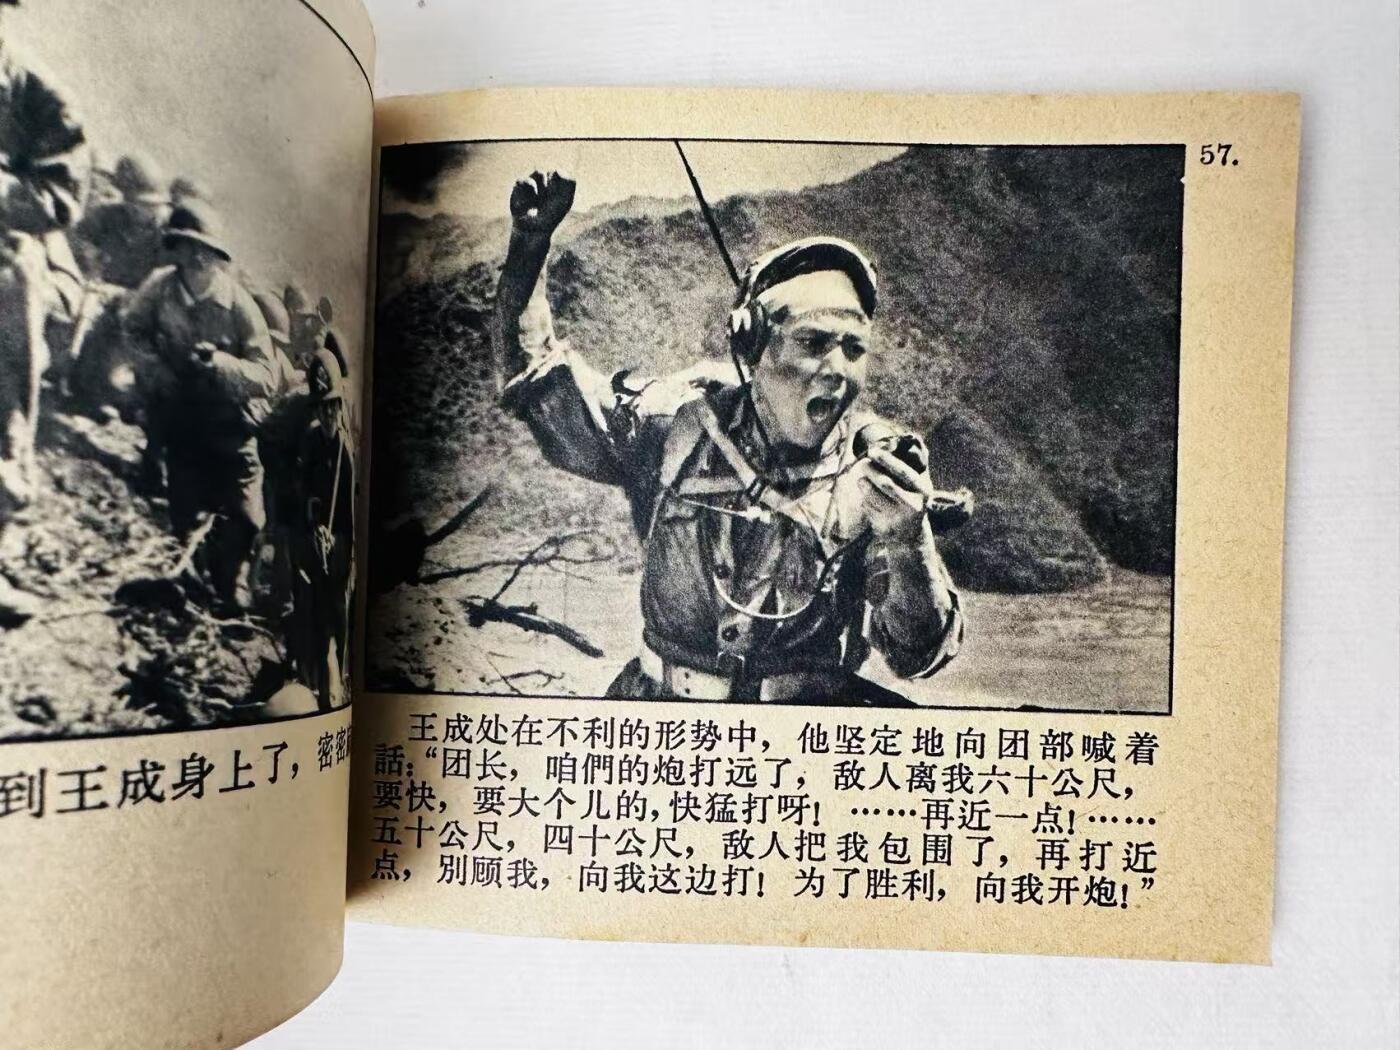 到王成身上了，密密
57.
王成处在不利的形势中，他坚定地向团部喊着
話：“团长，咱們的炮打远了，敌人离我六十公尺，
要快，要大个儿的，快猛打呀！……再近一点！……
五十公尺，四十公尺，敌人把我包围了，再打近
点，别顾我，向我这边打！为了胜利，向我开炮！”